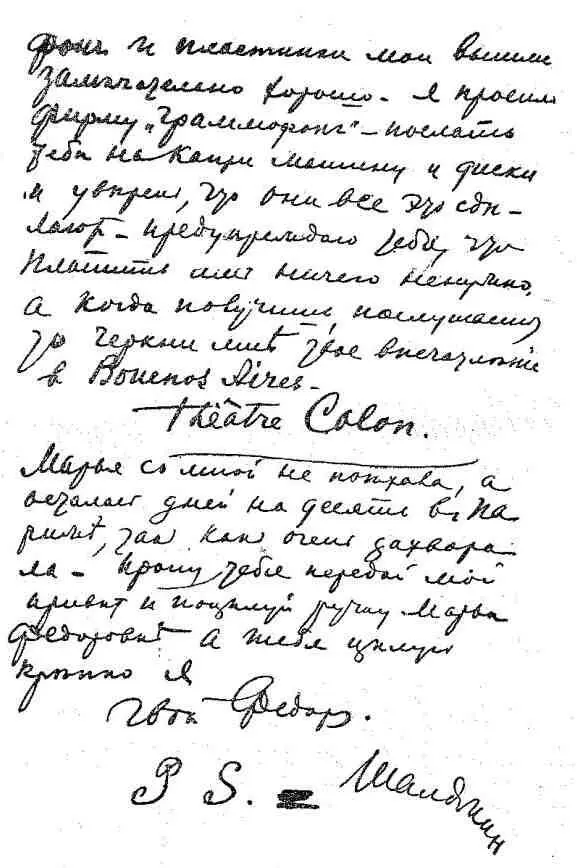 фонъ и пластинки мои вышли
замѣчательно хорошо – я просилъ
фирму „Граммофонъ" – послать
тебѣ на Капри машину и диски
и увѣренъ, что они все это сдѣ-
лают – предупреждаю тебя, что
платить имъ ничего ненужно,
а когда получишь, послушаешь
то черкни мнѣ твое впечатлѣніе
в Bouenos Aires –
Théâtre Colon.
Марья со мной не поѣхала, а
осталась дней на десять въ Па
рижѣ, так как очень захвора
ла – прошу тебя передай мой
привѣт и поцѣлуй ручку Марьи
Федоровнѣ а тебя цѣлую
крѣпко я
твой Федоръ.
Шаляпин
P S. =